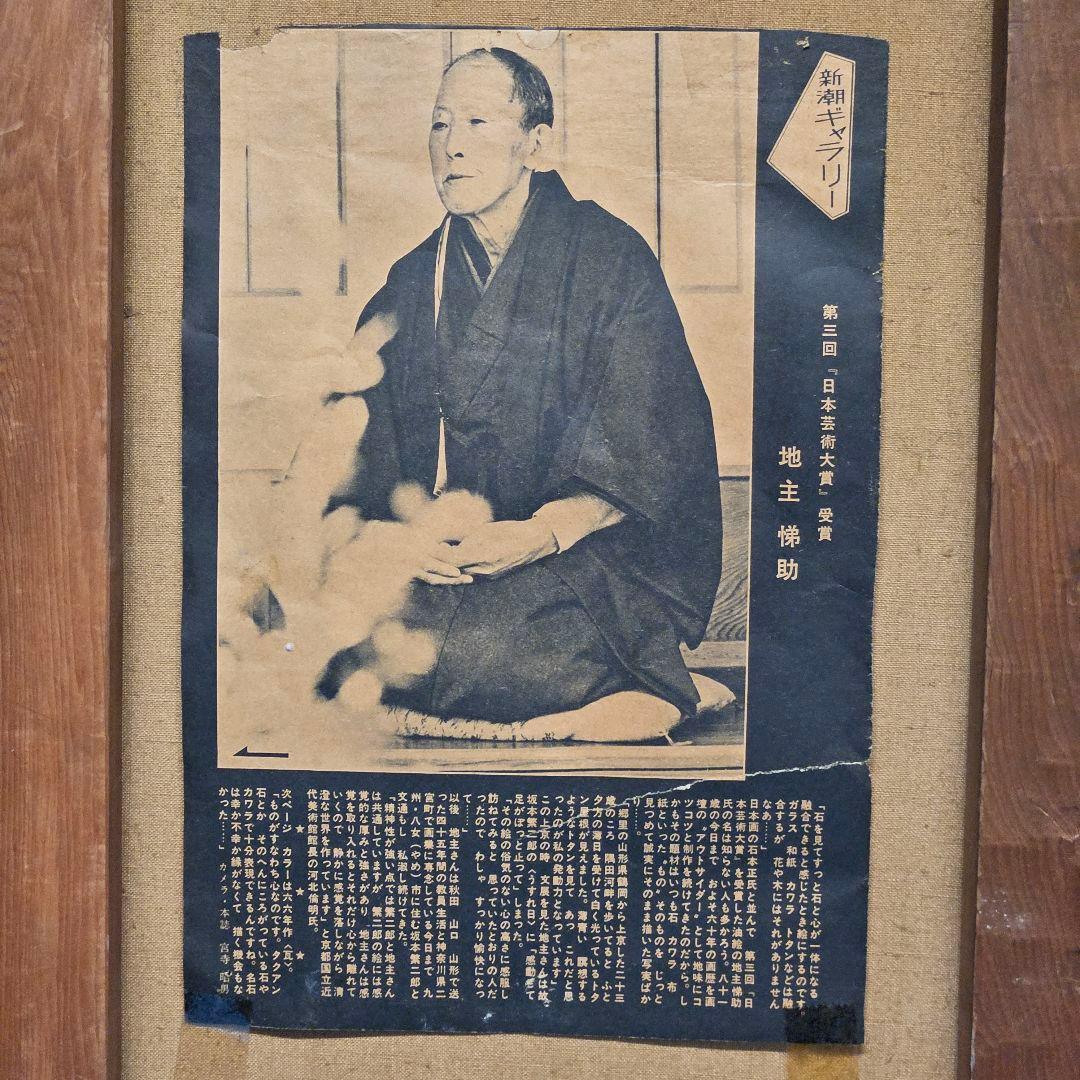 新潮ギャラリー
第三回『日本芸術大賞』受賞
地主 悌助
「石を見てすっと石と心が一体になる
融合できると感じたとき絵にするのです。
ガラス 和紙 カワラ トタンなどは融
合するが 花や木にはそれがありません
なあ……」
日本画の石本正氏と並んで 第三回『日
本芸術大賞』を受賞した油絵の地主悌助
氏の名は知らない人も多かろう。八十一
歳の今日まで およそ六十年の画歴を画
壇の“アウトサイダー”として地味にコ
ツコツと制作を続けてきたのだから。し
かもその題材は いつも石 カワラ 布
紙といった。もの。そのものを じっと
見つめて誠実にそのまま描いた写実ばか
り……。
「郷里の山形県鶴岡から上京した二十三
歳のころ 隅田河畔を歩いてると ふと
夕方の薄日を受けて白く光っているトタ
ン屋根が見えました。薄青い 瞑想する
ようなトタンを見て あっ これだと思
ったのが私の発動力となっています」
この上京の時 文展を見た地主さんは故
坂本繁二郎の〈うすれ日〉に「感動して
足がぽっと止って」しまった。
「その絵の俗気のない心の高さに感服し
訪ねてみると 思っていたとおりの人だ
ったので わしゃ すっかり愉快になっ
て……」
以後 地主さんは秋田 山口 山形で送
った四十五年間の教員生活と神奈川県二
宮町で画業に専念している今日まで 九
州・八女(やめ)市に住む坂本繁二郎と
文通もし 私淑し続けてきた。
「精神性が強い点では繁二郎と地主さん
は共通していますが 繁二郎の絵には感
覚的な厚みと強さがあり 地主さんは感
覚を取り入れるとそれだけ心から離れて
いくので 静かに感覚を落しながら 清
澄な世界を作っています」と京都国立近
代美術館館長の河北倫明氏。
★ ★ ★
次ページ カラーは六六年作〈瓦〉。
「ものがすなわち心なのです。タクアン
石とか そのへんにころがっている石や
カワラで十分表現できるんですね。名石
は幸か不幸か縁がなくて 描く機会もな
かった……」 カメラ・本誌 宮寺 昭男